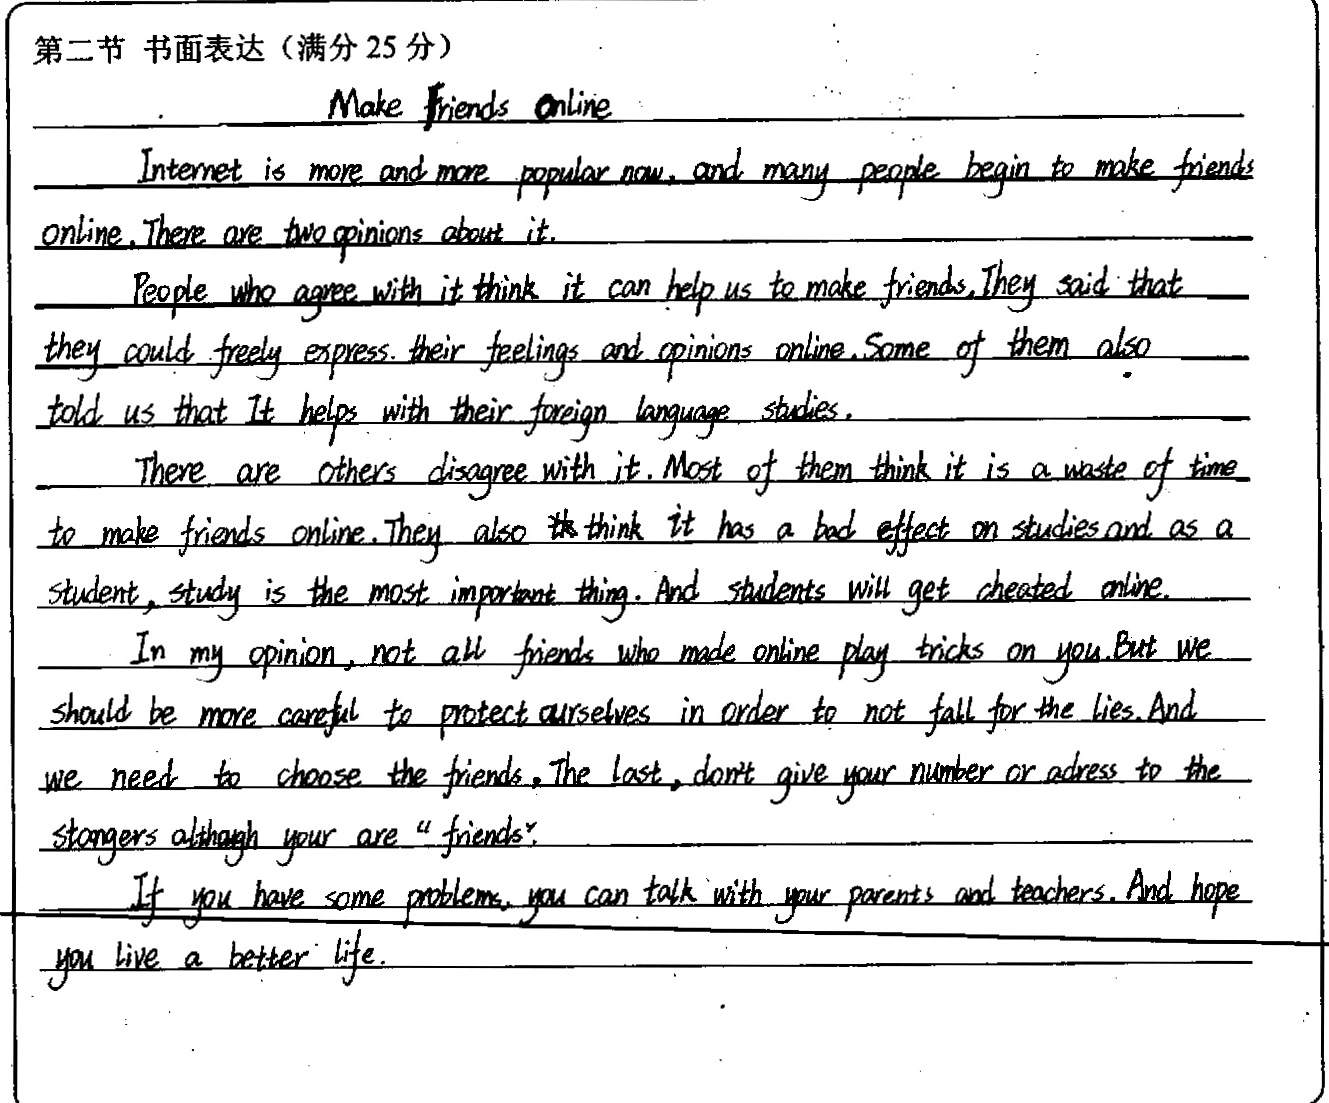 第二节 书面表达（满分 25 分）
Make Friends Online
Internet is more and more popular now, and many people begin to make friends
online. There are two opinions about it.
People who agree with it think it can help us to make friends. They said that
they could freely express their feelings and opinions online. Some of them also
told us that It helps with their foreign language studies.
There are others disagree with it. Most of them think it is a waste of time
to make friends online. They also think it has a bad effect on studies and as a
student, study is the most important thing. And students will get cheated online.
In my opinion, not all friends who made online play tricks on you. But we
should be more careful to protect ourselves in order to not fall for the lies. And
we need to choose the friends. The last, don't give your number or adress to the
stangers although your are "friends".
If you have some problems, you can talk with your parents and teachers. And hope
you live a better life.